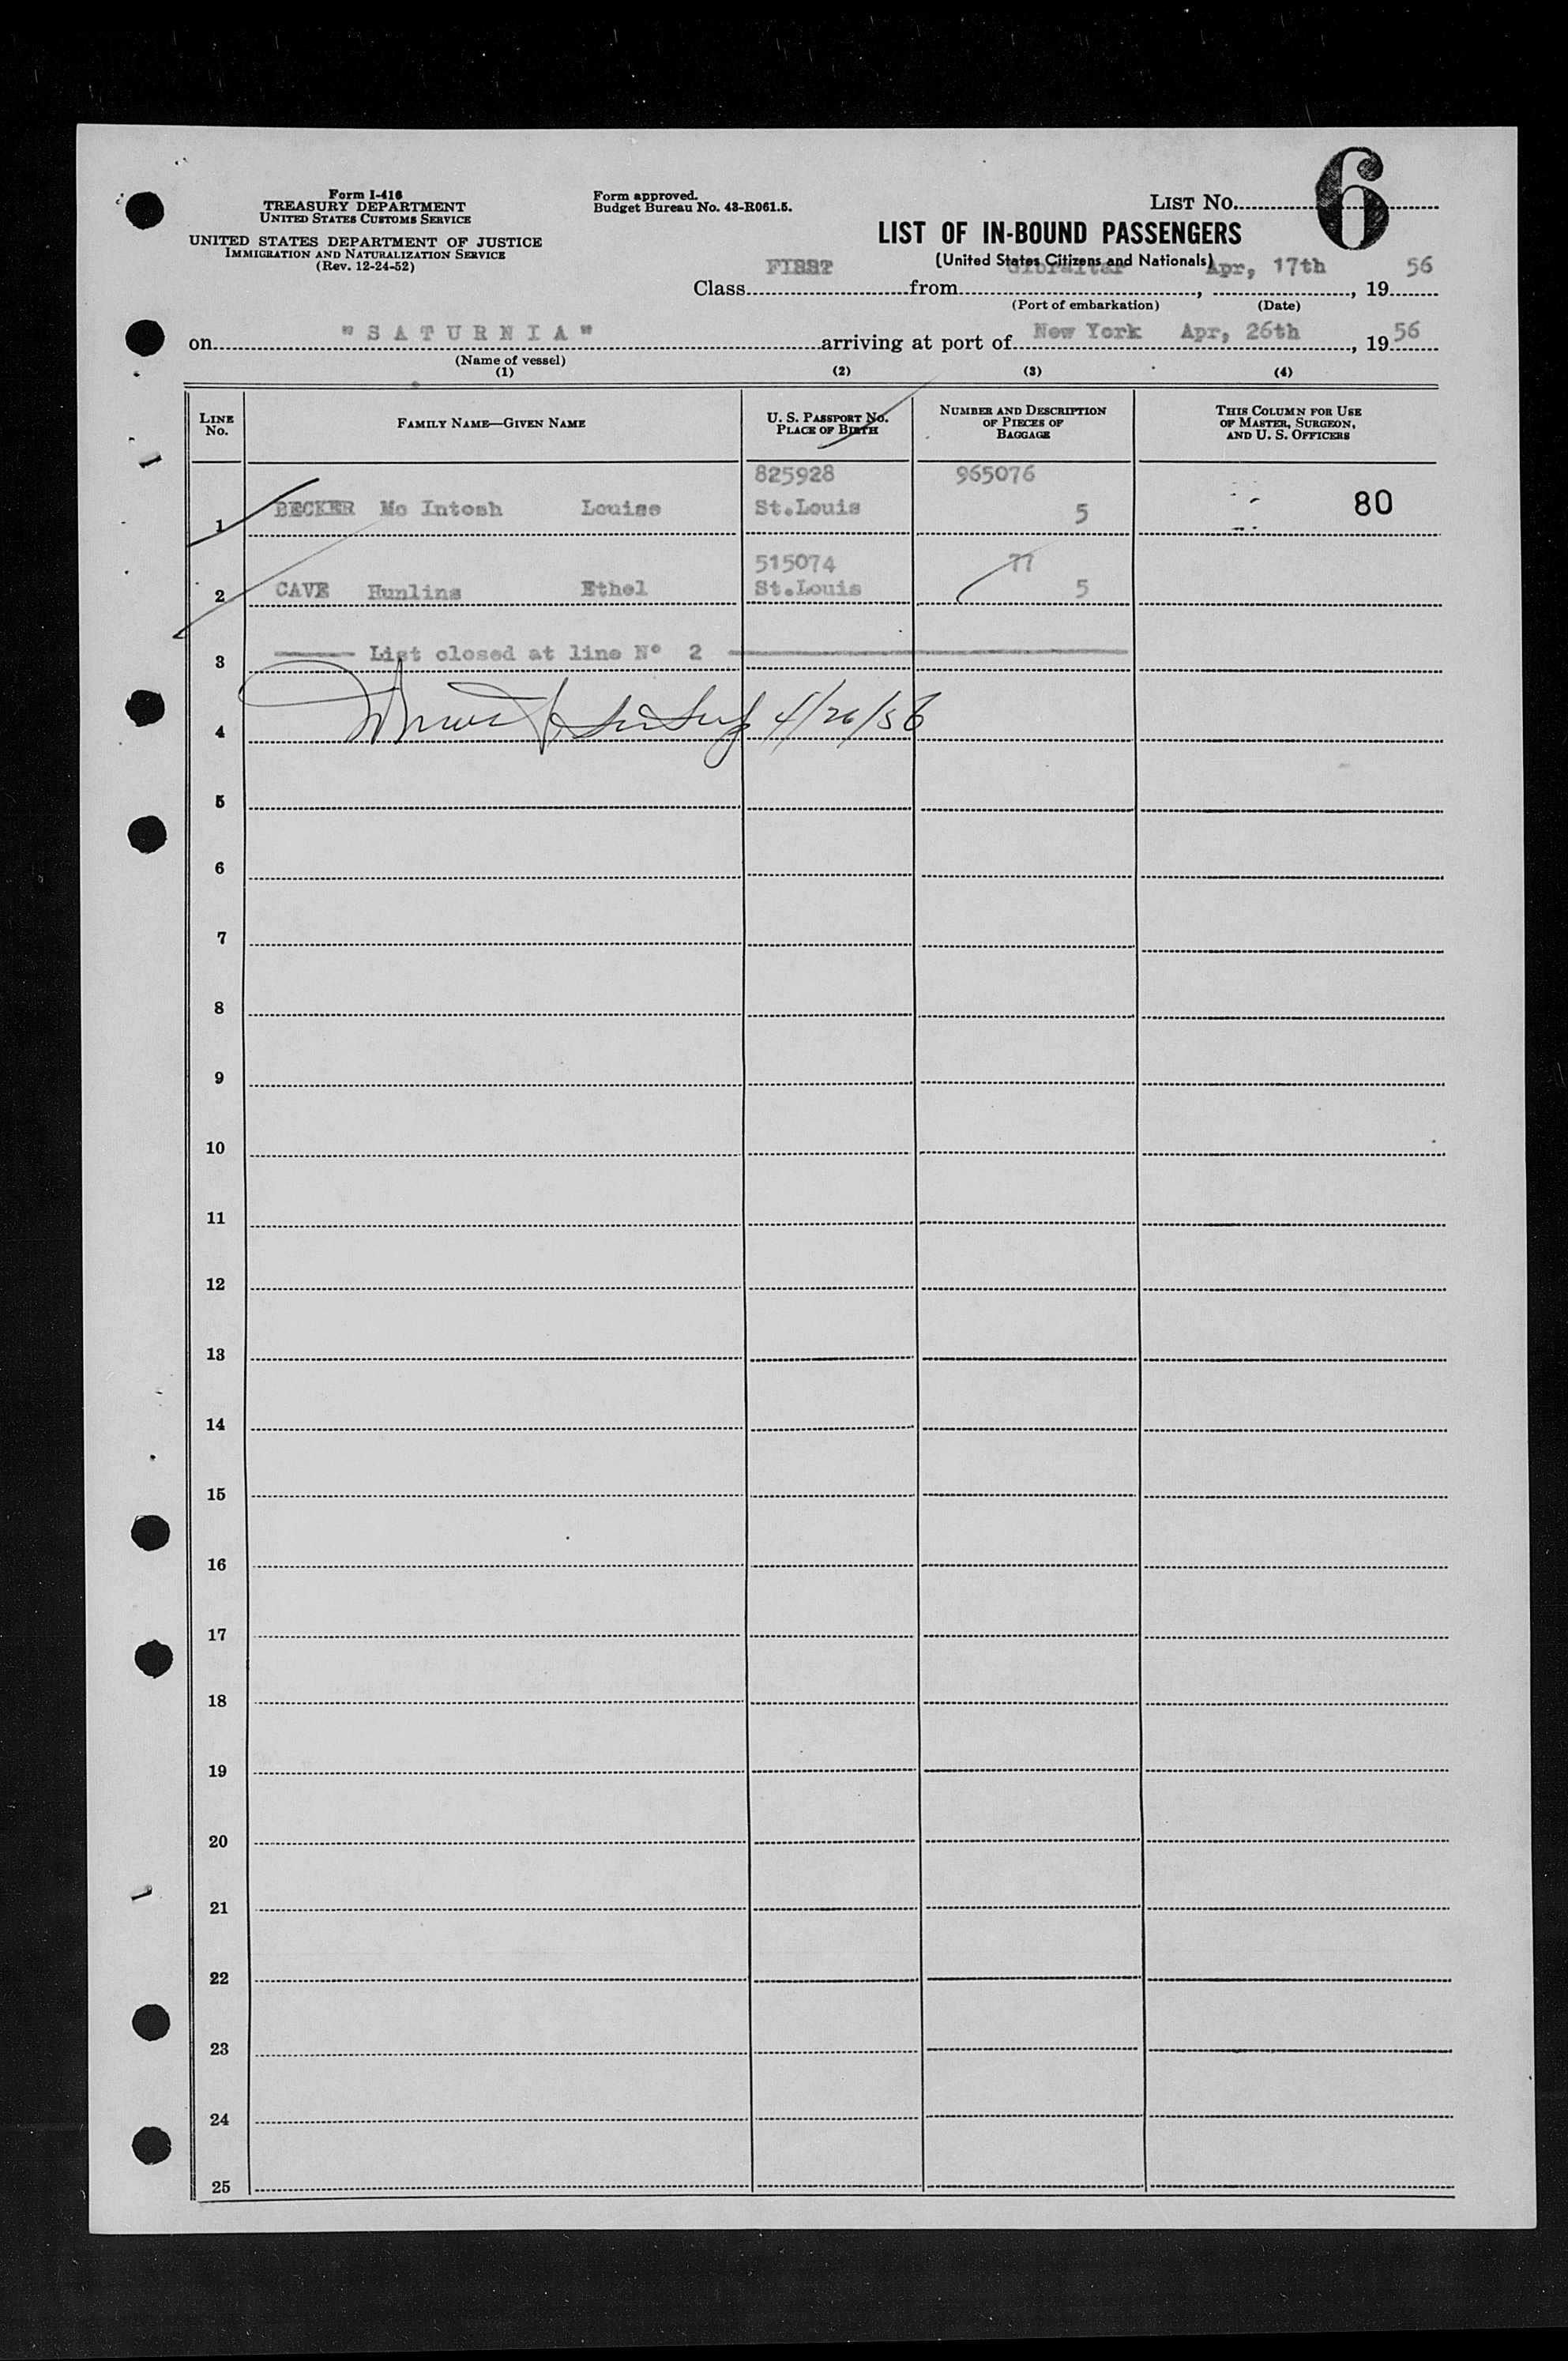 Form I-416
TREASURY DEPARTMENT
UNITED STATES CUSTOMS SERVICE
UNITED STATES DEPARTMENT OF JUSTICE
IMMIGRATION AND NATURALIZATION SERVICE
(Rev. 12-24-52)
Form approved.
Budget Bureau No. 43-R061.5.
LIST NO. 6
LIST OF IN-BOUND PASSENGERS
(United States Citizens and Nationals)
Class FIRST from Gibraltar, Apr, 17th, 19 56
(Port of embarkation) (Date)
on "SATURNIA" arriving at port of New York Apr, 26th, 19 56
(Name of vessel)
(1) (2) (3) (4)
LINE NO. FAMILY NAME—GIVEN NAME U. S. PASSPORT NO. PLACE OF BIRTH NUMBER AND DESCRIPTION OF PIECES OF BAGGAGE THIS COLUMN FOR USE OF MASTER, SURGEON, AND U. S. OFFICERS
825928 965076
1 BECKER Mc Intosh Louise St.Louis 5 80
515074 77
2 CAVE Hunlins Ethel St.Louis 5
3 List closed at line N° 2
4 4/26/56
5
6
7
8
9
10
11
12
13
14
15
16
17
18
19
20
21
22
23
24
25